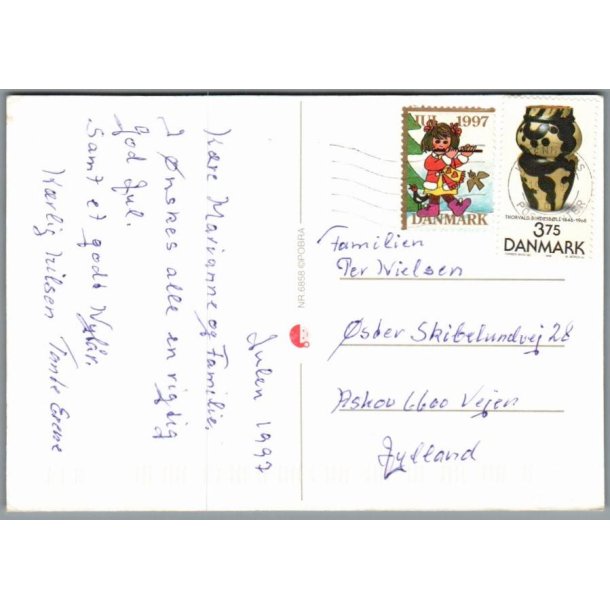 Julen 1997
Kære Marianne og Familie,
I Ønskes alle en rigtig
god Jul.
Samt et godt Nytår.
Kærlig hilsen Tante
NR. 6858 © POBRA
JUL 1997
DANMARK
THORVALD BINDESBØLL 1846-1908
3.75
DANMARK
Familien
Per Nielsen
Øster Skibelundvej 28
Askov 6600 Vejen
Jylland